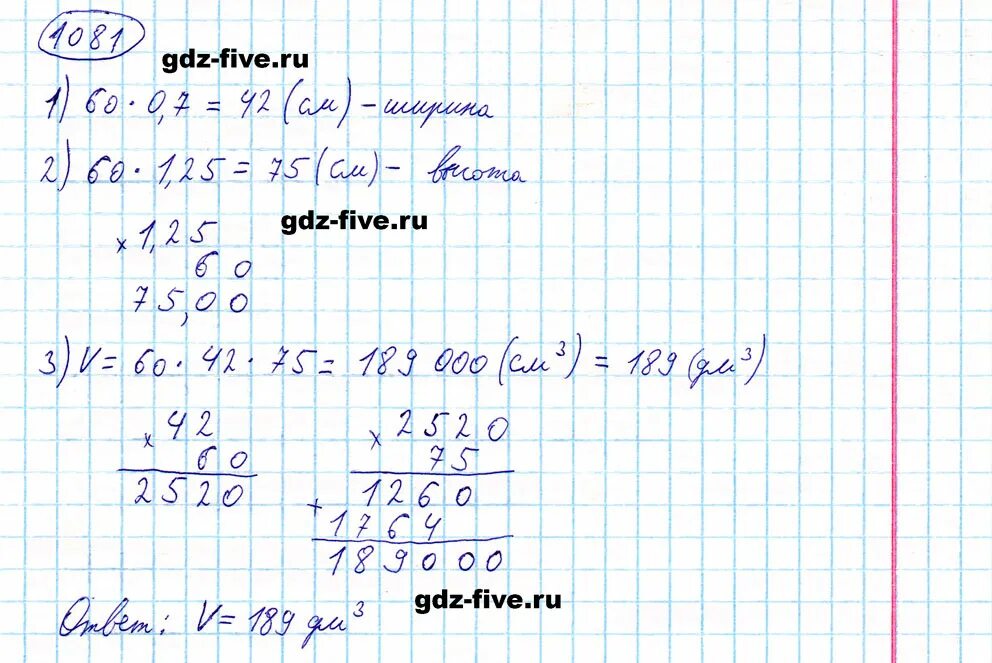 1081
gdz-five.ru
1) 60 · 0,7 = 42 (см) - ширина
2) 60 · 1,25 = 75 (см) - высота
gdz-five.ru
× 1,25
60
75,00
3) V = 60 · 42 · 75 = 189 000 (см³) = 189 (дм³)
× 42
60
2520
× 2520
75
+ 1260
1764
189000
gdz-five.ru
Ответ: V = 189 дм³